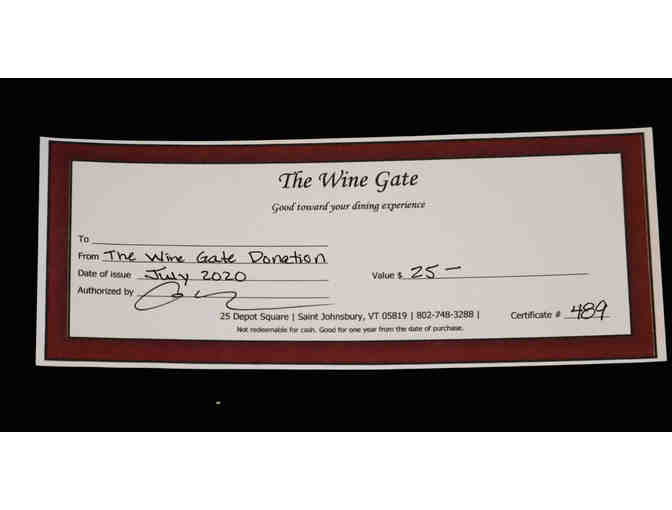 The Wine Gate
Good toward your dining experience
To
From The Wine Gate Donation
Date of issue July 2020
Value $ 25 –
Authorized by
25 Depot Square | Saint Johnsbury, VT 05819 | 802-748-3288 |
Certificate # 489
Not redeemable for cash. Good for one year from the date of purchase.